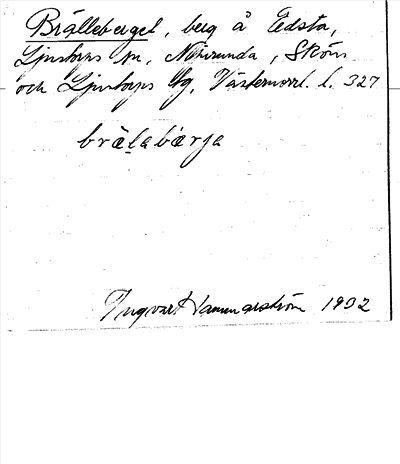 Brälleberget, berg å Edsta,
Ljustorps sn, Njurunda, Sköns
och Ljustorps tg, Västernorrl. l. 327
bräl̥abærja
Ingvar Hammarström 1932